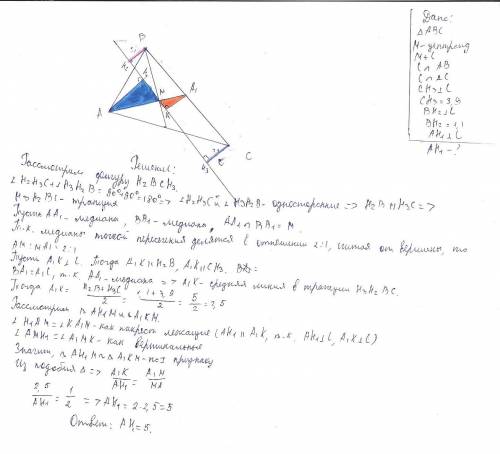 Дано:
△ABC
M - центроид
M ∈ l
l ∩ AB
l ∩ BC
CH₃ ⊥ l
CH₃ = 3,9
BH₂ ⊥ l
BH₂ = 1,1
AH₁ ⊥ l
AH₁ - ?
B
H₂
A
M
A₁
K
H₃
C
Решение:
Рассмотрим фигуру H₂BCH₃.
∠H₂H₃C + ∠H₃H₂B = 90° + 90° = 180° => ∠H₂H₃C и ∠H₃H₂B - односторонние => H₂B ∥ H₃C =>
- трапеция
Пусть AA₁ - медиана, BB₁ - медиана, AA₁ ∩ BB₁ = M.
Т.к. медианы точкой пересечения делятся в отношении 2:1, считая от вершины, то
AM : MA₁ = 2:1
Пусть A₁K ⊥ l. Тогда A₁K ∥ H₂B, A₁K ∥ CH₃.
BA₁ = A₁C, т.к. AA₁ - медиана => A₁K - средняя линия в трапеции H₃H₂BC.
Тогда A₁K = H₂B + H₃C / 2 = 1,1 + 3,9 / 2 = 5/2 = 2,5
Рассмотрим △AH₁M и △A₁KM.
∠H₁AM = ∠KA₁M - как накрест лежащие (AH₁ ∥ A₁K, т.к. AH₁ ⊥ l, A₁K ⊥ l)
∠AMH₁ = ∠A₁MK - как вертикальные
Значит, △AH₁M ~ △A₁KM - по I признаку
Из подобия △ => A₁K / AH₁ = A₁M / MA
2,5 / AH₁ = 1/2 => AH₁ = 2·2,5 = 5
Ответ: AH₁ = 5.